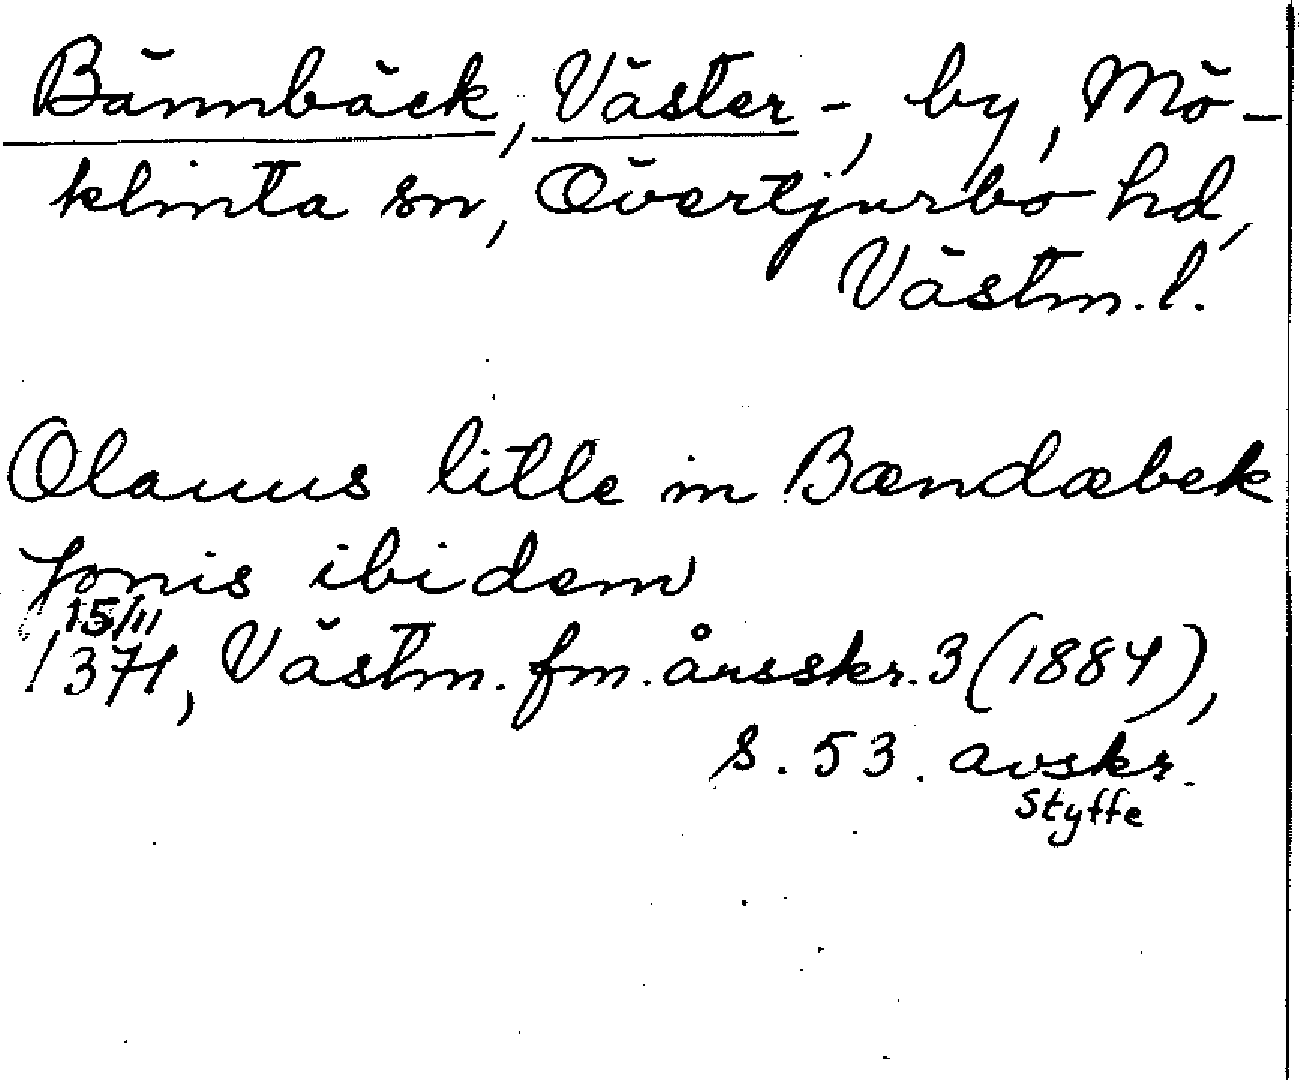 Bännbäck, Väster -, by, Mö-
klinta sn, Övertjurbo hd,
Västm. l.
Olauus litle in Bændæbek
Jonis ibidem
15/11
1371, Västm. fm. årsskr. 3 (1884),
s. 53. avskr.
Styffe